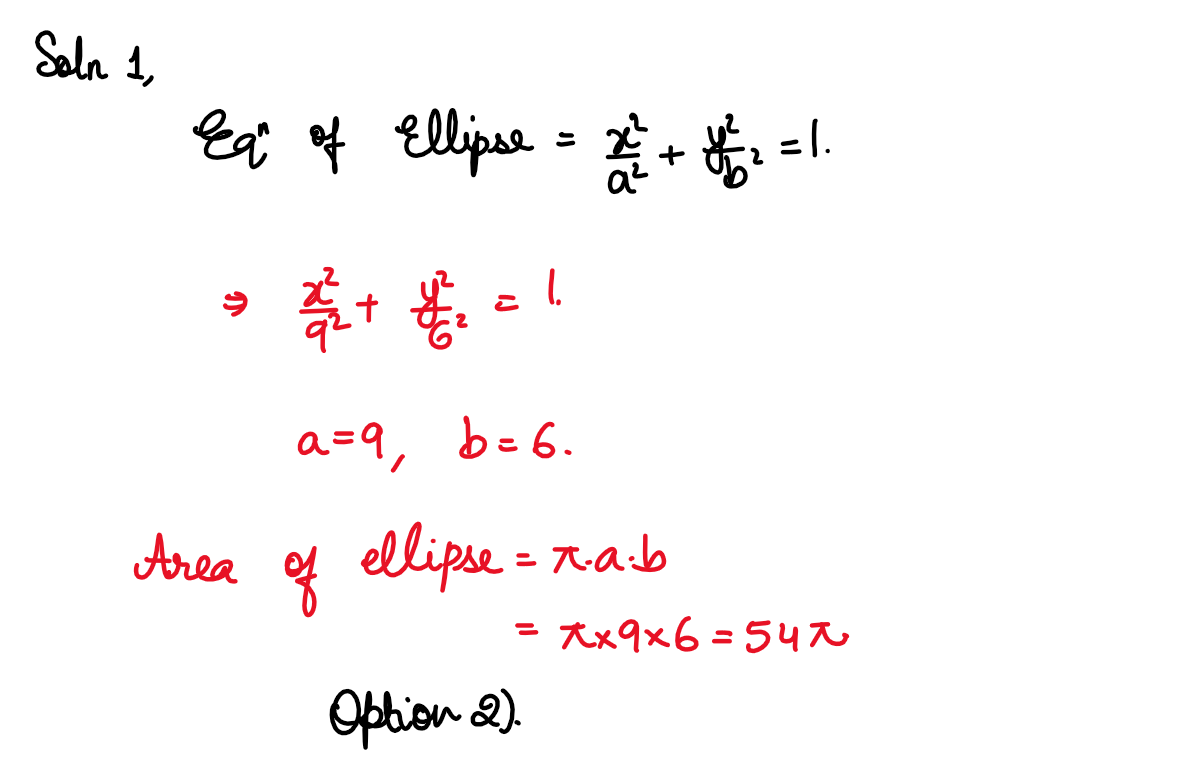 Soln 1,
Eqⁿ of Ellipse = x²/a² + y²/b² = 1.
⇒ x²/9² + y²/6² = 1.
a=9, b=6.
Area of ellipse = π.a.b
= π×9×6 = 54π
Option 2).